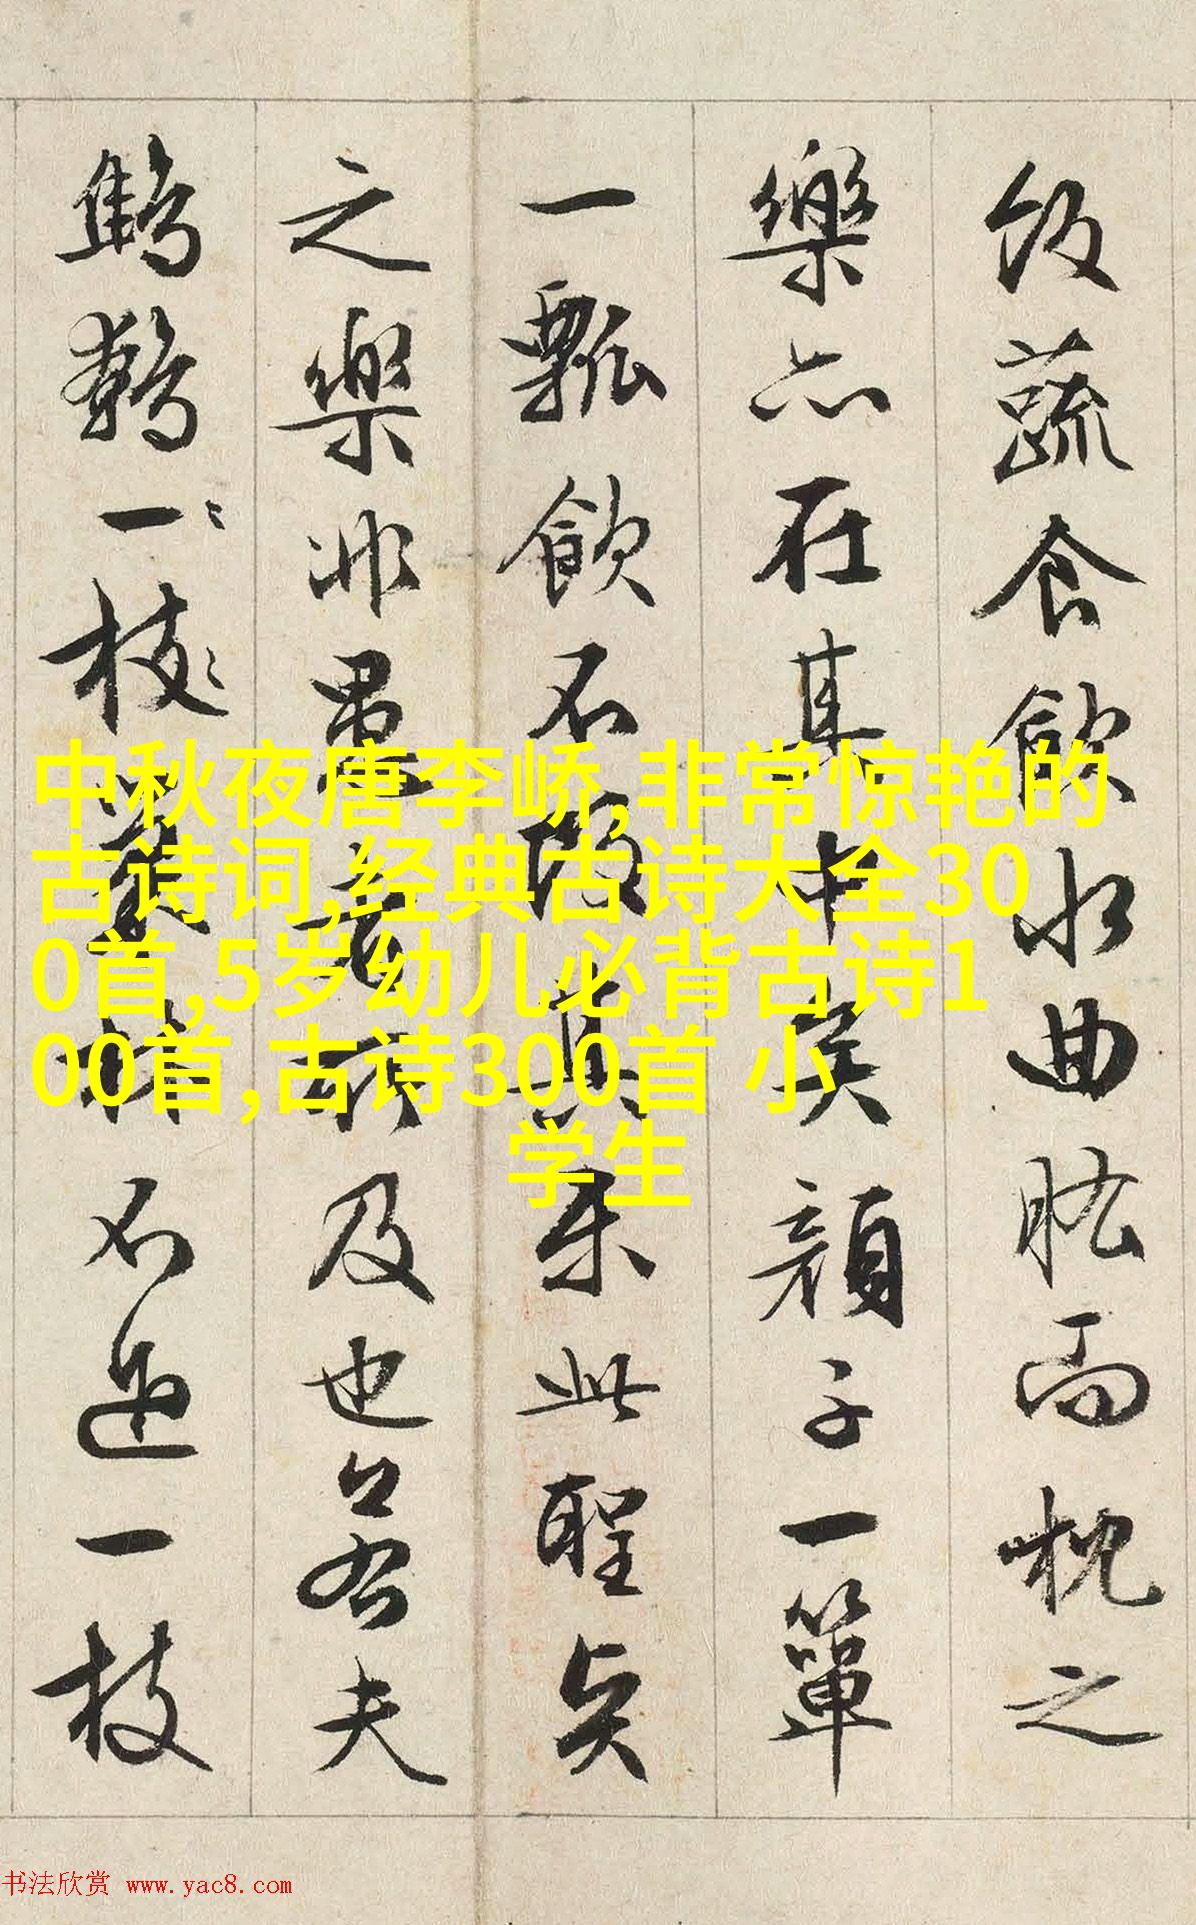 飯蔬食飲水曲肱而枕之
樂亦在其中矣顏子一簞
一瓢飲不改其樂此聖賢
之樂非愚者所及也若夫
鷦鷯一枝巢林不過一枝
中秋夜唐李峤,非常惊艳的
古诗词,经典古诗大全30
0首,5岁幼儿必背古诗1
00首,古诗300首 小
学生
书法欣赏 www.yac8.com